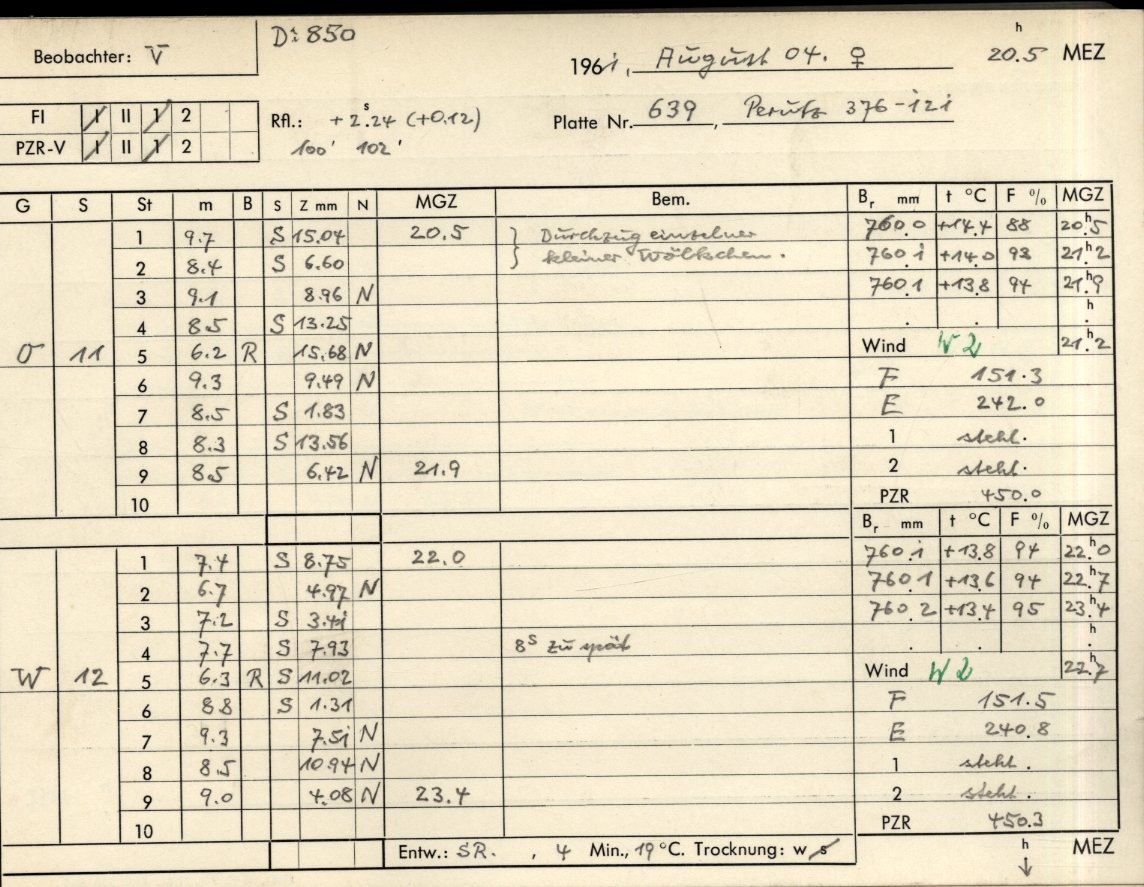 Beobachter: V
D: 850
1961, August 04. ♀
20.5 h MEZ
FI I II 1 2
PZR-V I II 1 2
Rfl.: +2.24 s (+0.12)
100' 102'
Platte Nr. 639, Perutz 376-121
G S St m B S Z mm N MGZ Bem. Br mm t °C F % MGZ
1 9.7 S 15.04 20.5 } Durchzug einzelner 760.0 +14.4 88 20.5 h
2 8.4 S 6.60 kleiner Wölkchen. 760.1 +14.0 93 21.2 h
3 9.1 8.96 N 760.1 +13.8 94 21.9 h
4 8.5 S 13.25 . . h .
O 11 5 6.2 R 15.68 N Wind W 2 21.2 h
6 9.3 9.49 N F 151.3
7 8.5 S 1.83 E 242.0
8 8.3 S 13.56 1 steht.
9 8.5 6.42 N 21.9 2 steht.
10 PZR 450.0
Br mm t °C F % MGZ
1 7.4 S 8.75 22.0 760.1 +13.8 94 22.0 h
2 6.7 4.97 N 760.1 +13.6 94 22.7 h
3 7.2 S 3.41 760.2 +13.4 95 23.4 h
4 7.7 S 7.93 8 s zu spät . . h .
W 12 5 6.3 R S 11.02 Wind W 2 22.7 h
6 8.8 S 1.31 F 151.5
7 9.3 7.51 N E 240.8
8 8.5 10.94 N 1 steht.
9 9.0 4.08 N 23.4 2 steht.
10 PZR 450.3
Entw.: SR. , 4 Min., 19 °C. Trocknung: w s
h ↓ MEZ